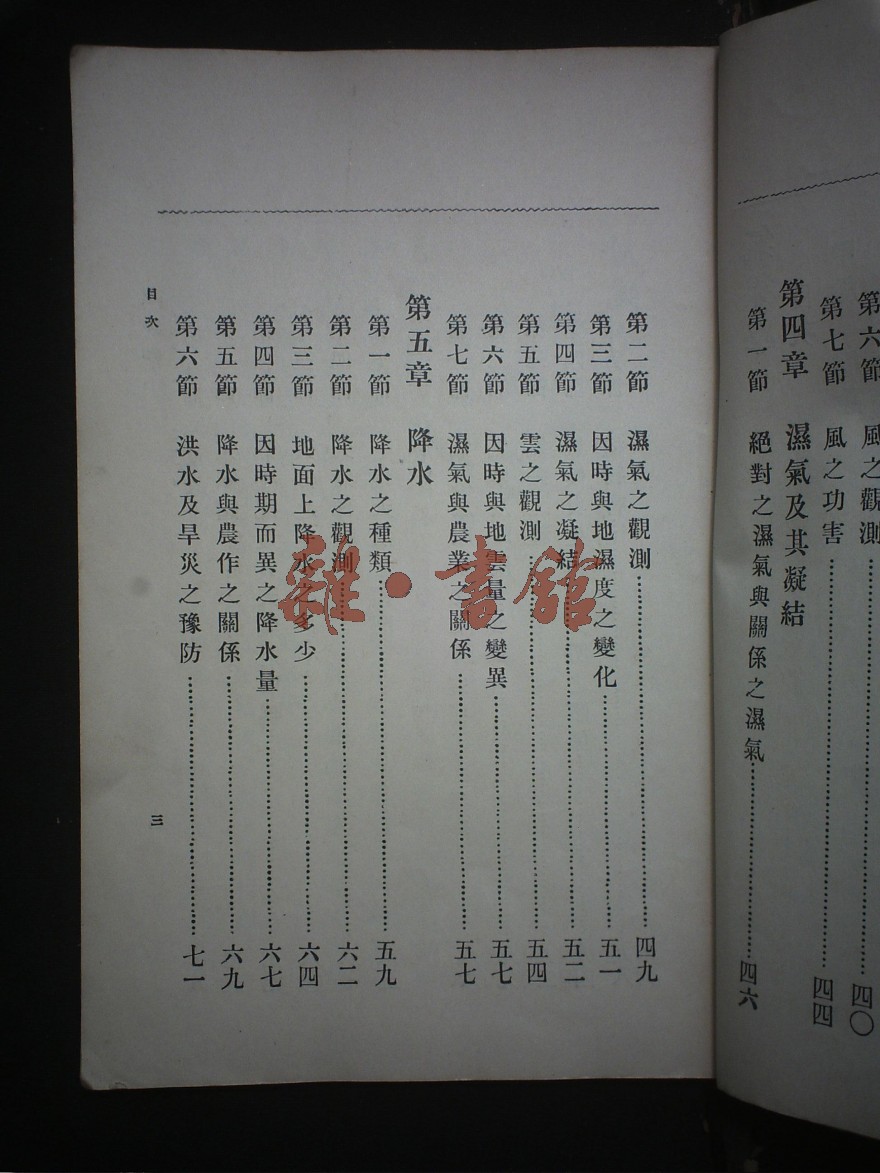 第六節 風之觀測……四〇
第七節 風之功害……四四
第四章 濕氣及其凝結
第一節 絕對之濕氣與關係之濕氣……四六
第二節 濕氣之觀測……四九
第三節 因時與地濕度之變化……五一
第四節 濕氣之凝結……五二
第五節 雲之觀測……五四
第六節 因時與地雲量之變異……五七
第七節 濕氣與農業之關係……五七
第五章 降水
第一節 降水之種類……五九
第二節 降水之觀測……六二
第三節 地面上降水之多少……六四
第四節 因時期而異之降水量……六七
第五節 降水與農作之關係……六九
第六節 洪水及旱災之豫防……七一
目次 三
雜·書館